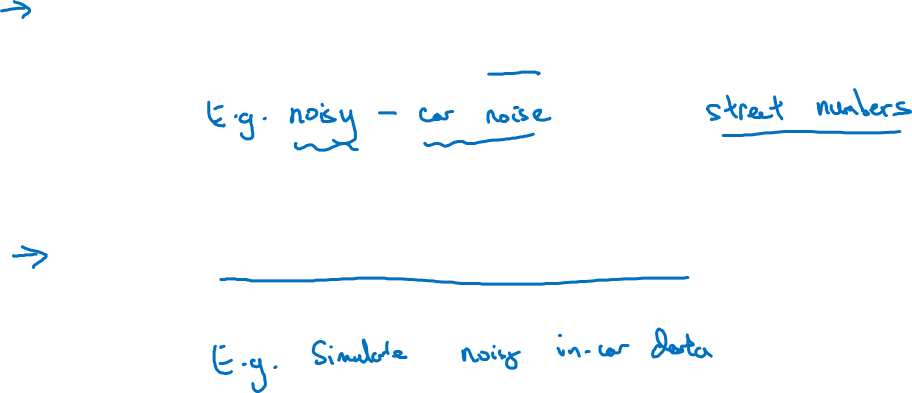 E.g. noisy - car noise street numbers
E.g. Simulate noisy in-car data